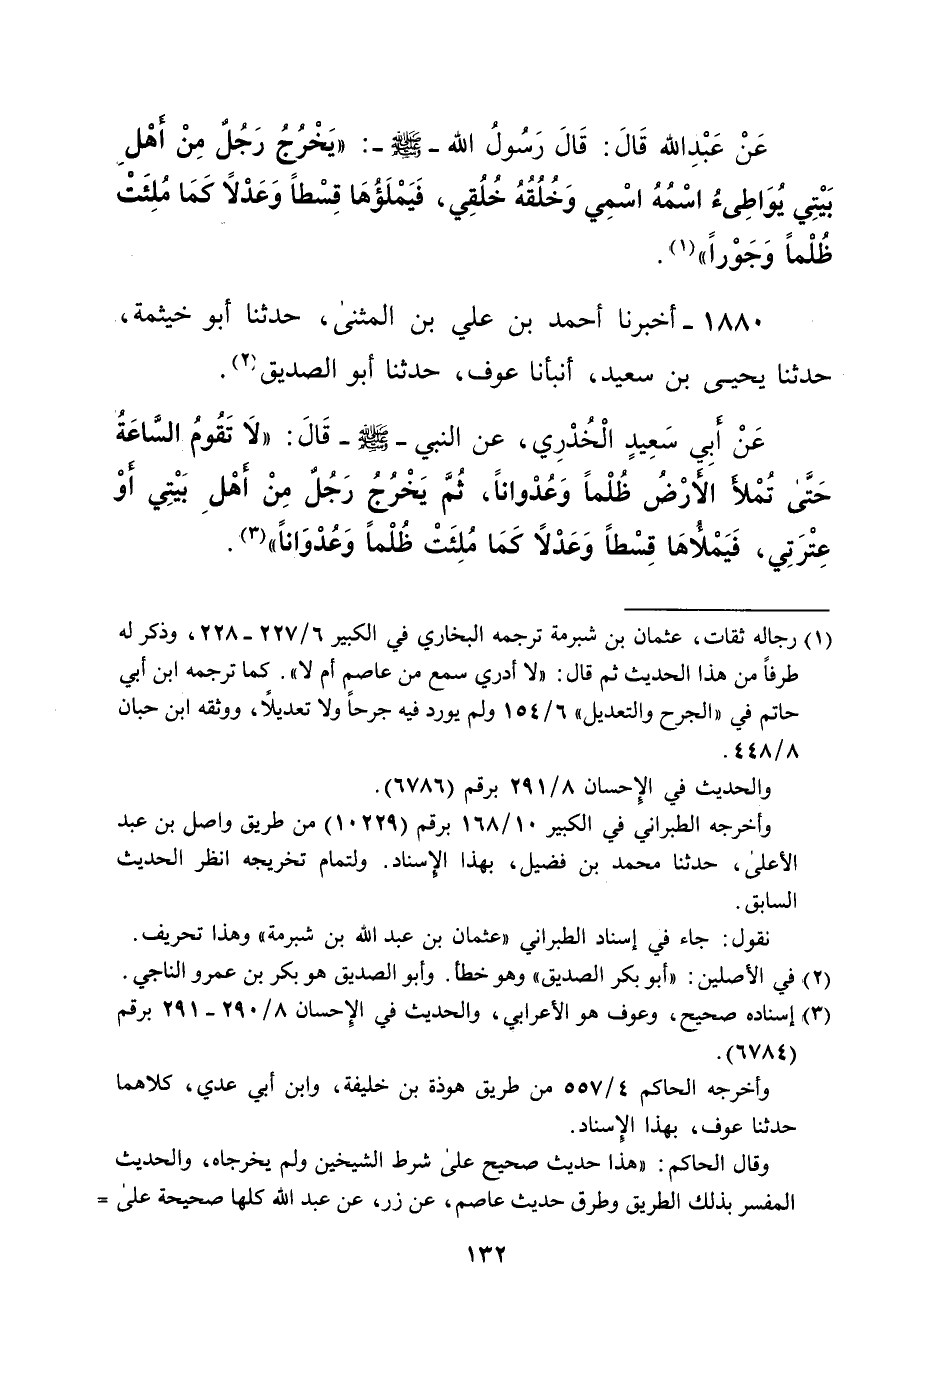 عَنْ عَبْدِالله قَالَ: قَالَ رَسُولُ الله ـ ﷺ ـ: «يَخْرُجُ رَجُلٌ مِنْ أَهْلِ
بَيْتِي يُوَاطِىءُ اسْمُهُ اسْمِي وَخُلُقُهُ خُلُقِي، فَيَمْلَؤُهَا قِسْطاً وَعَدْلاً كَمَا مُلِئَتْ
ظُلْماً وَجَوْراً»(١).
١٨٨٠ ـ أخبرنا أحمد بن علي بن المثنىٰ، حدثنا أبو خيثمة،
حدثنا يحيـى بن سعيد، أنبأنا عوف، حدثنا أبو الصديق(٢).
عَنْ أَبِي سَعِيدٍ الْخُدْرِي، عن النبي ـ ﷺ ـ قَالَ: «لَا تَقُومُ السَّاعَةُ
حَتَّىٰ تُمْلأَ الأَرْضُ ظُلْماً وَعُدْواناً، ثُمَّ يَخْرُجُ رَجُلٌ مِنْ أَهْلِ بَيْتِي أَوْ
عِتْرَتِي، فَيَمْلُأُهَا قِسْطاً وَعَدْلاً كَمَا مُلِئَتْ ظُلْماً وَعُدْوَاناً»(٣).
(١) رجاله ثقات، عثمان بن شبرمة ترجمه البخاري في الكبير ٢٢٧/٦ ـ ٢٢٨، وذكر له
طرفاً من هذا الحديث ثم قال: «لا أدري سمع من عاصم أم لا». كما ترجمه ابن أبي
حاتم في «الجرح والتعديل» ١٥٤/٦ ولم يورد فيه جرحاً ولا تعديلاً، ووثقه ابن حبان
٤٤٨/٨.
والحديث في الإحسان ٢٩١/٨ برقم (٦٧٨٦).
وأخرجه الطبراني في الكبير ١٦٨/١٠ برقم (١٠٢٢٩) من طريق واصل بن عبد
الأعلىٰ، حدثنا محمد بن فضيل، بهذا الإسناد. ولتمام تخريجه انظر الحديث
السابق.
نقول: جاء في إسناد الطبراني «عثمان بن عبد الله بن شبرمة» وهذا تحريف.
(٢) في الأصلين: «أبو بكر الصديق» وهو خطأ. وأبو الصديق هو بكر بن عمرو الناجي.
(٣) إسناده صحيح، وعوف هو الأعرابي، والحديث في الإحسان ٢٩٠/٨ ـ ٢٩١ برقم
(٦٧٨٤).
وأخرجه الحاكم ٥٥٧/٤ من طريق هوذة بن خليفة، وابن أبي عدي، كلاهما
حدثنا عوف، بهذا الإسناد.
وقال الحاكم: «هذا حديث صحيح علىٰ شرط الشيخين ولم يخرجاه، والحديث
المفسر بذلك الطريق وطرق حديث عاصم، عن زر، عن عبد الله كلها صحيحة علىٰ =
١٣٢